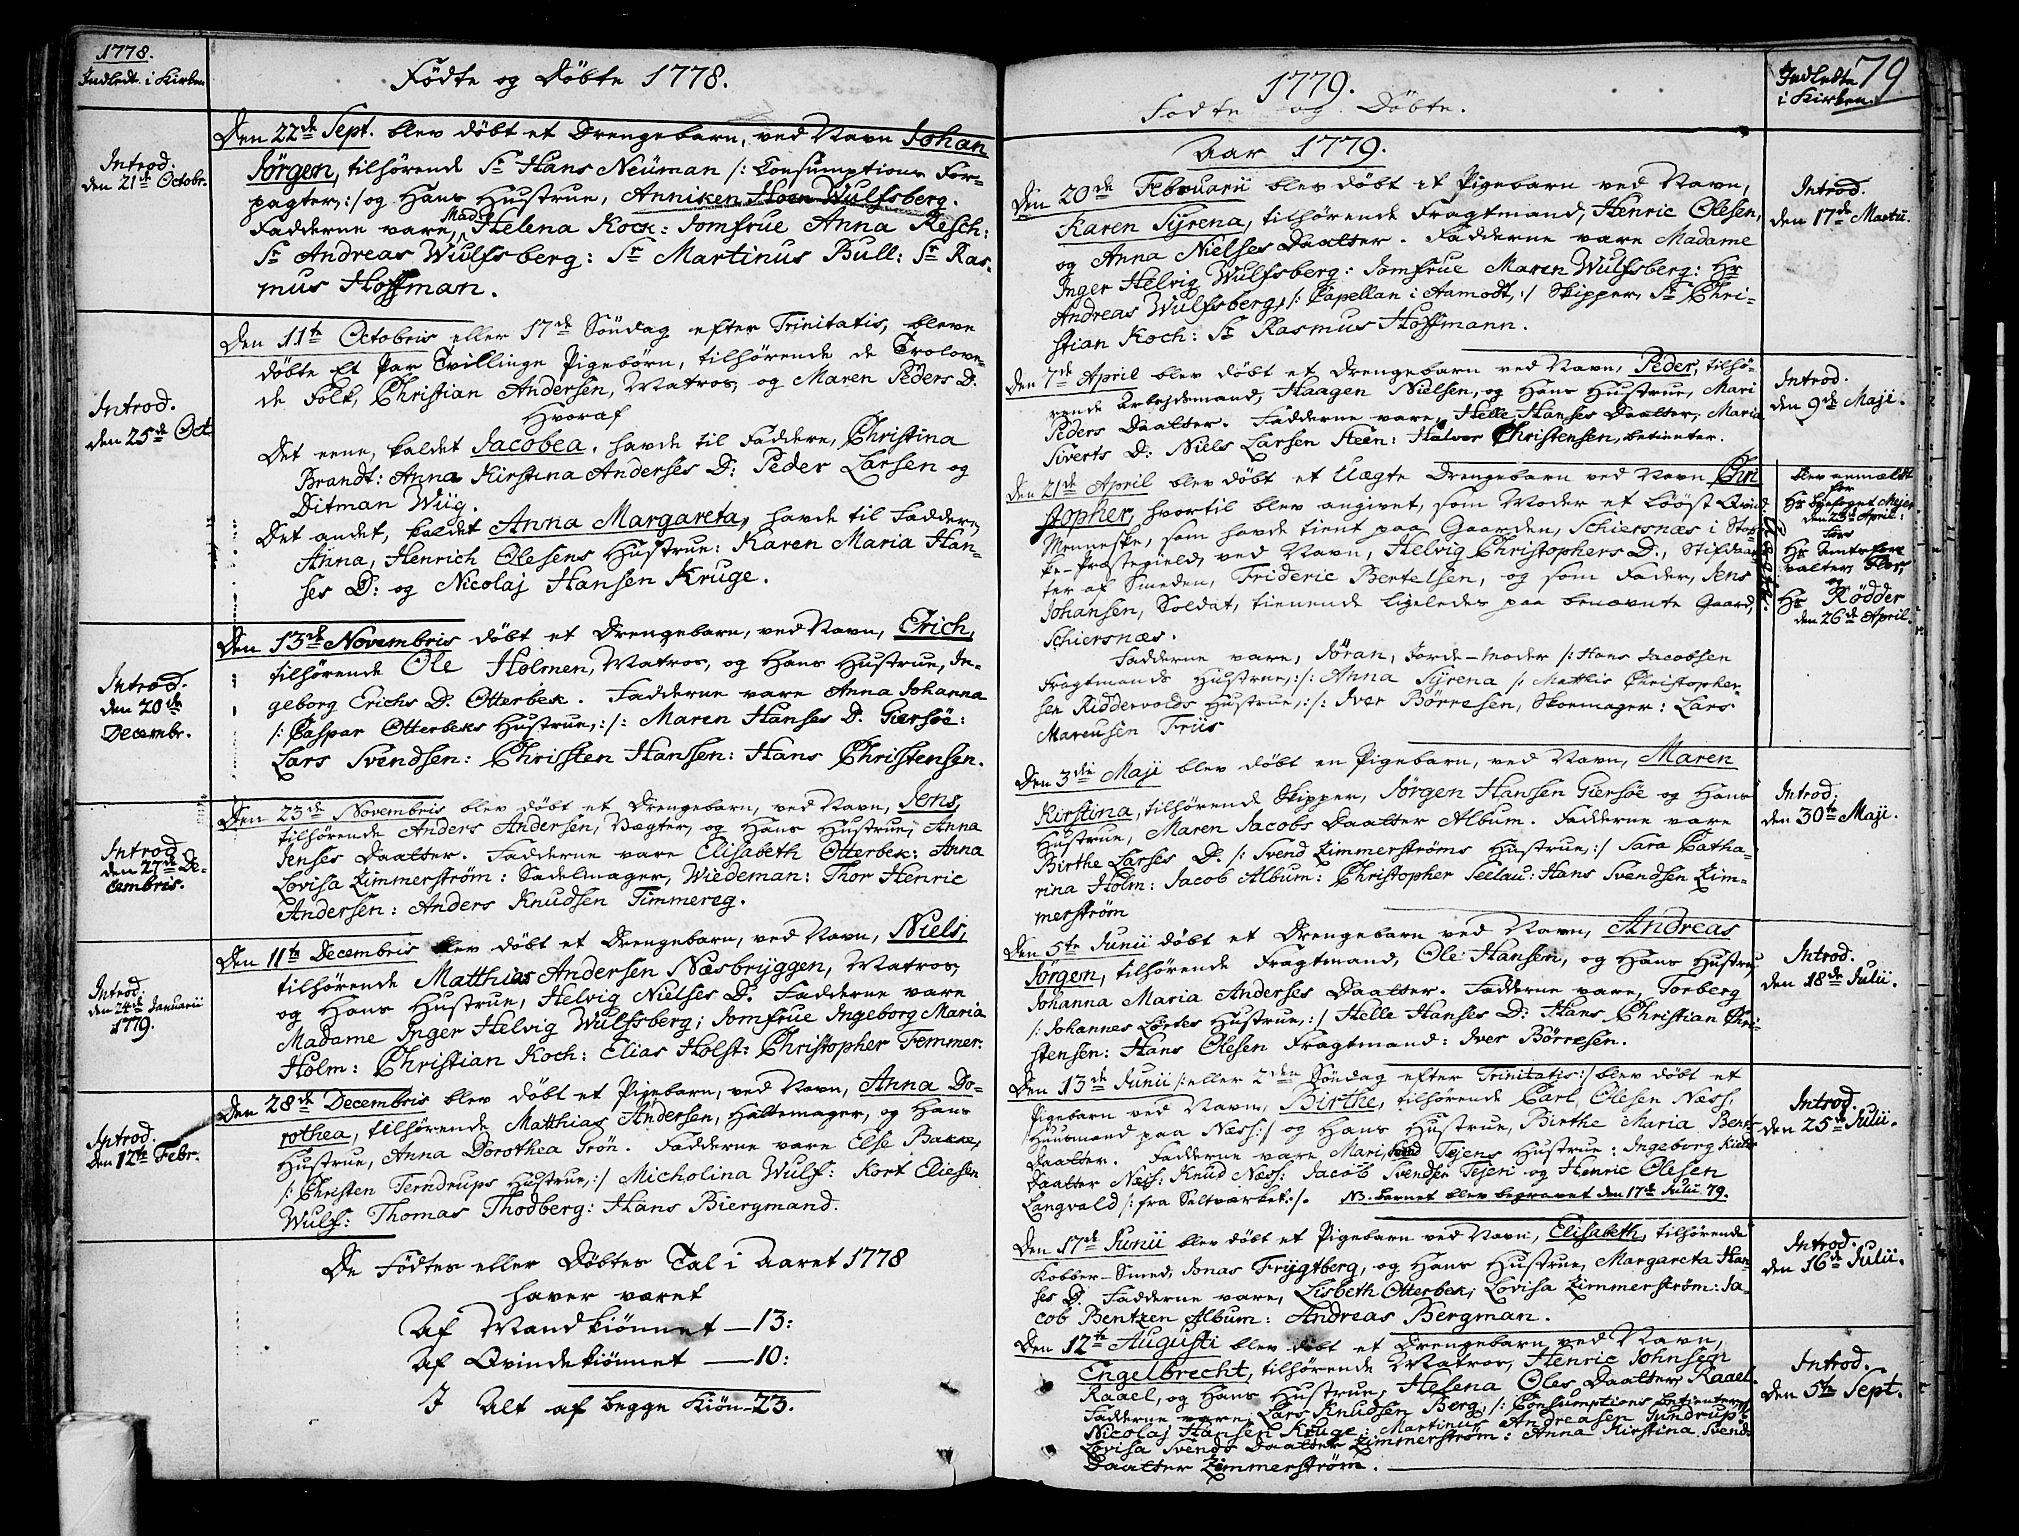 1778.
Indledt. i Kirken
Fødte og Døbte 1778.
Introd.
den 21de Octobr.
Den 22de Sept. blev døbt et Drengebarn, ved Navn Johan
Jörgen, tilhörende Sr Hans Neüman /: Consumptions For-
pagter, :/ og Hans Hustrue, Anniken Hoen Wulfsberg.
Fadderne vare, Mad. Helena Kock: Jomfrue Anna Resch:
Sr Andreas Wulfsberg: Sr Martinus Bull: Sr Ras-
mus Hoffman.
Introd.
den 25de Oct.
Den 11te Octobris eller 17de Søndag efter Trinitatis, bleve
døbte Et Par Tvillinge Pigebørn, tilhörende de Trolove-
de Folk, Christian Andersen, Matros, og Maren Peders D.
Hvoraf
Det eene, kaldet Jacobea, havde til Faddere, Christina
Brandt: Anna Kirstina Anderses D: Peder Larsen og
Ditman Wiig.
Det andet, kaldet Anna Margareta, havde til Faddere,
Anna, Henrich Olesens Hustrue: Karen Maria Han-
ses D: og Nicolaj Hansen Kruge.
Introd.
den 20de
Decembr.
Den 13de Novembris døbt et Drengebarn, ved Navn, Erich,
tilhörende Ole Holmen, Matros, og Hans Hustrue, In-
geborg Erichs D. Otterbek. Fadderne vare Anna Johanna
/: Caspar Otterbeks Hustrue, :/: Maren Hanses D. Giersöe:
Lars Svendsen: Christen Hansen: Hans Christensen.
Introd.
den 27de De-
cembris.
Den 23de Novembris blev døbt et Drengebarn, ved Navn, Jens,
tilhörende Anders Andersen, Vægter, og Hans Hustrue, Anna
Jenses Daatter. Fadderne vare Elisabeth Otterbek: Anna
Lovisa Zimmerström: Sadelmager, Wiedeman: Thor Henric
Andersen: Anders Knudsen Timmereg.
Introd.
den 24de Januarii
1779.
Den 11te Decembris blev døbt et Drengebarn, ved Navn, Niels,
tilhörende Matthias Andersen Næsbryggen, Matros,
og Hans Hustrue, Helvig Nielses D. Fadderne vare
Madame Inger Helvig Wulfsberg; Jomfrue Ingeborg Maria
Holm: Christian Koch: Elias Holst: Christopher Femmer.
Introd.
den 12te Febr.
Den 28de Decembris blev døbt et Pigebarn, ved Navn, Anna Do-
rothea, tilhörende Matthias Andersen, Hattemager, og Hans
Hustrue, Anna Dorothea Grön. Fadderne vare Else Bakke,
/: Christen Terndrups Hustrue, :/ Micholina Wulf: Kort Eliesen
Wulf: Thomas Thodberg: Hans Biergmand.
De Fødtes eller Døbtes Tal i Aaret 1778
haver været
Af Mandkiønnet — 13:
Af Qvindekiønnet — 10:
I Alt af begge Kiön — 23.
1779.
Fødte og Døbte.
Indledte
i Kirken.
79
Aar 1779.
Introd.
den 17de Martii.
Den 20de Februarii blev døbt et Pigebarn ved Navn,
Karen Syrena, tilhörende Fragtmand, Henric Olesen,
og Anna Nielses Daatter. Fadderne vare Madame
Inger Helvig Wulfsberg: Jomfrue Maren Wulfsberg: Hr
Andreas Wulfsberg, /: Capellan i Aamodt, :/ Skipper, Sr Chri-
stian Koch: Sr Rasmus Hoffmann.
Introd.
den 9de Maji.
Den 7de April blev døbt et Drengebarn ved Navn, Peder, tilhö-
rende Arbejdsmand, Haagen Nielsen, og Hans Hustrue, Mari
Peders Daatter. Fadderne vare, Helle Hanses Daatter, Maria
Siverts D: Niels Larsen Steen: Halvor Christensen, betienter.
Den 21de April blev døbt et Uægte Drengebarn ved Navn, Chri
stopher, hvortil blev angivet, som Moder et Lööst Qvind
Menneske, som havde tient paa Gaarden, Schiersnæs i Stok-
ke-Præstegield, ved Navn, Helvig Christophers D., Stifdaat-
ter af Smeden, Frideric Bertelsen, og som Fader, Jens
Johansen, Soldat, tienende ligeledes paa benævnte Gaard,
Schiersnæs.
Uægte.
Blev anmeldt
for
den 23de April:
for
Hr Amtsfor
valter, Flor,
og
Hr Rödder
den 26de April.
Fadderne vare, Söran, Jorde-Moder /: Hans Jacobsen
Fragtmands Hustrue, :/: Anna Syrena /: Mathis Christopher-
sen Riddervolds Hustrue, :/: Iver Börresen, Skoemager: Lars
Marcusen Friis
Introd.
den 30te Maji.
Den 3die Maji blev døbt en Pigebarn, ved Navn, Maren
Kirstina, tilhörende Skipper, Jörgen Hansen Giersöe og Hans
Hustrue, Maren Jacobs Daatter Album. Fadderne vare
Birthe Larses D. /: Svend Zimmerströms Hustrue, :/ Sara Catha-
rina Holm: Jacob Album: Christopher Seelau: Hans Svendsen Zim-
merström
Introd.
den 18de Julii.
Den 5te Junii døbt et Drengebarn ved Navn, Andreas
Jörgen, tilhörende Fragtmand, Ole Hansen, og Hans Hustrue
Johanna Maria Anderses Daatter. Fadderne vare, Torberg
/: Johannes Lortes Hustrue, :/ Helle Hanses D: Hans Christian Chri-
stensen: Hans Olesen Fragtmand: Iver Börresen.
Introd.
den 25de Julii.
Den 13de Junii /: eller 2den Søndag efter Trinitatis :/ blev døbt et
Pigebarn ved Navn, Birthe, tilhörende Carl Olesen Næss,
Huusmand paa Næss :/ og Hans Hustrue, Birthe Maria Bents
Daatter. Fadderne vare, Mari, Svend Tejens Hustrue: Ingeborg
Daatter Næss: Knud Næss: Jacob Svendsen Tejen og Henric Olesen
Langvald /: fra Saltværket :/. NB. Barnet blev begravet den 17de Julii 79.
Introd.
den 16de Julii.
Den 17de Junii blev døbt et Pigebarn ved Navn, Elisabeth, tilhörende
Kobber-Smed, Jonas Frygtberg, og Hans Hustrue, Margareta Han-
ses D. Fadderne vare, Lisbeth Otterbek; Lovisa Zimmerström: Ja-
cob Bentzen Album: Andreas Bergman.
Introd.
den 5te Sept.
Den 12te Augusti blev døbt et Drengebarn, ved Navn,
Engelbrecht, tilhörende Matros, Henric Johnsen
Raael, og Hans Hustrue, Helena Oles Daatter, Raael.
Fadderne vare, Lars Knudsen Berg, /: Consumptions betienter:/
Nicolaj Hansen Kruge: Martinus Andreasen Gundrup:
Lovisa Svends Daatter Zimmerström: Anna Kirstina Svends
Daatter Zimmerström.